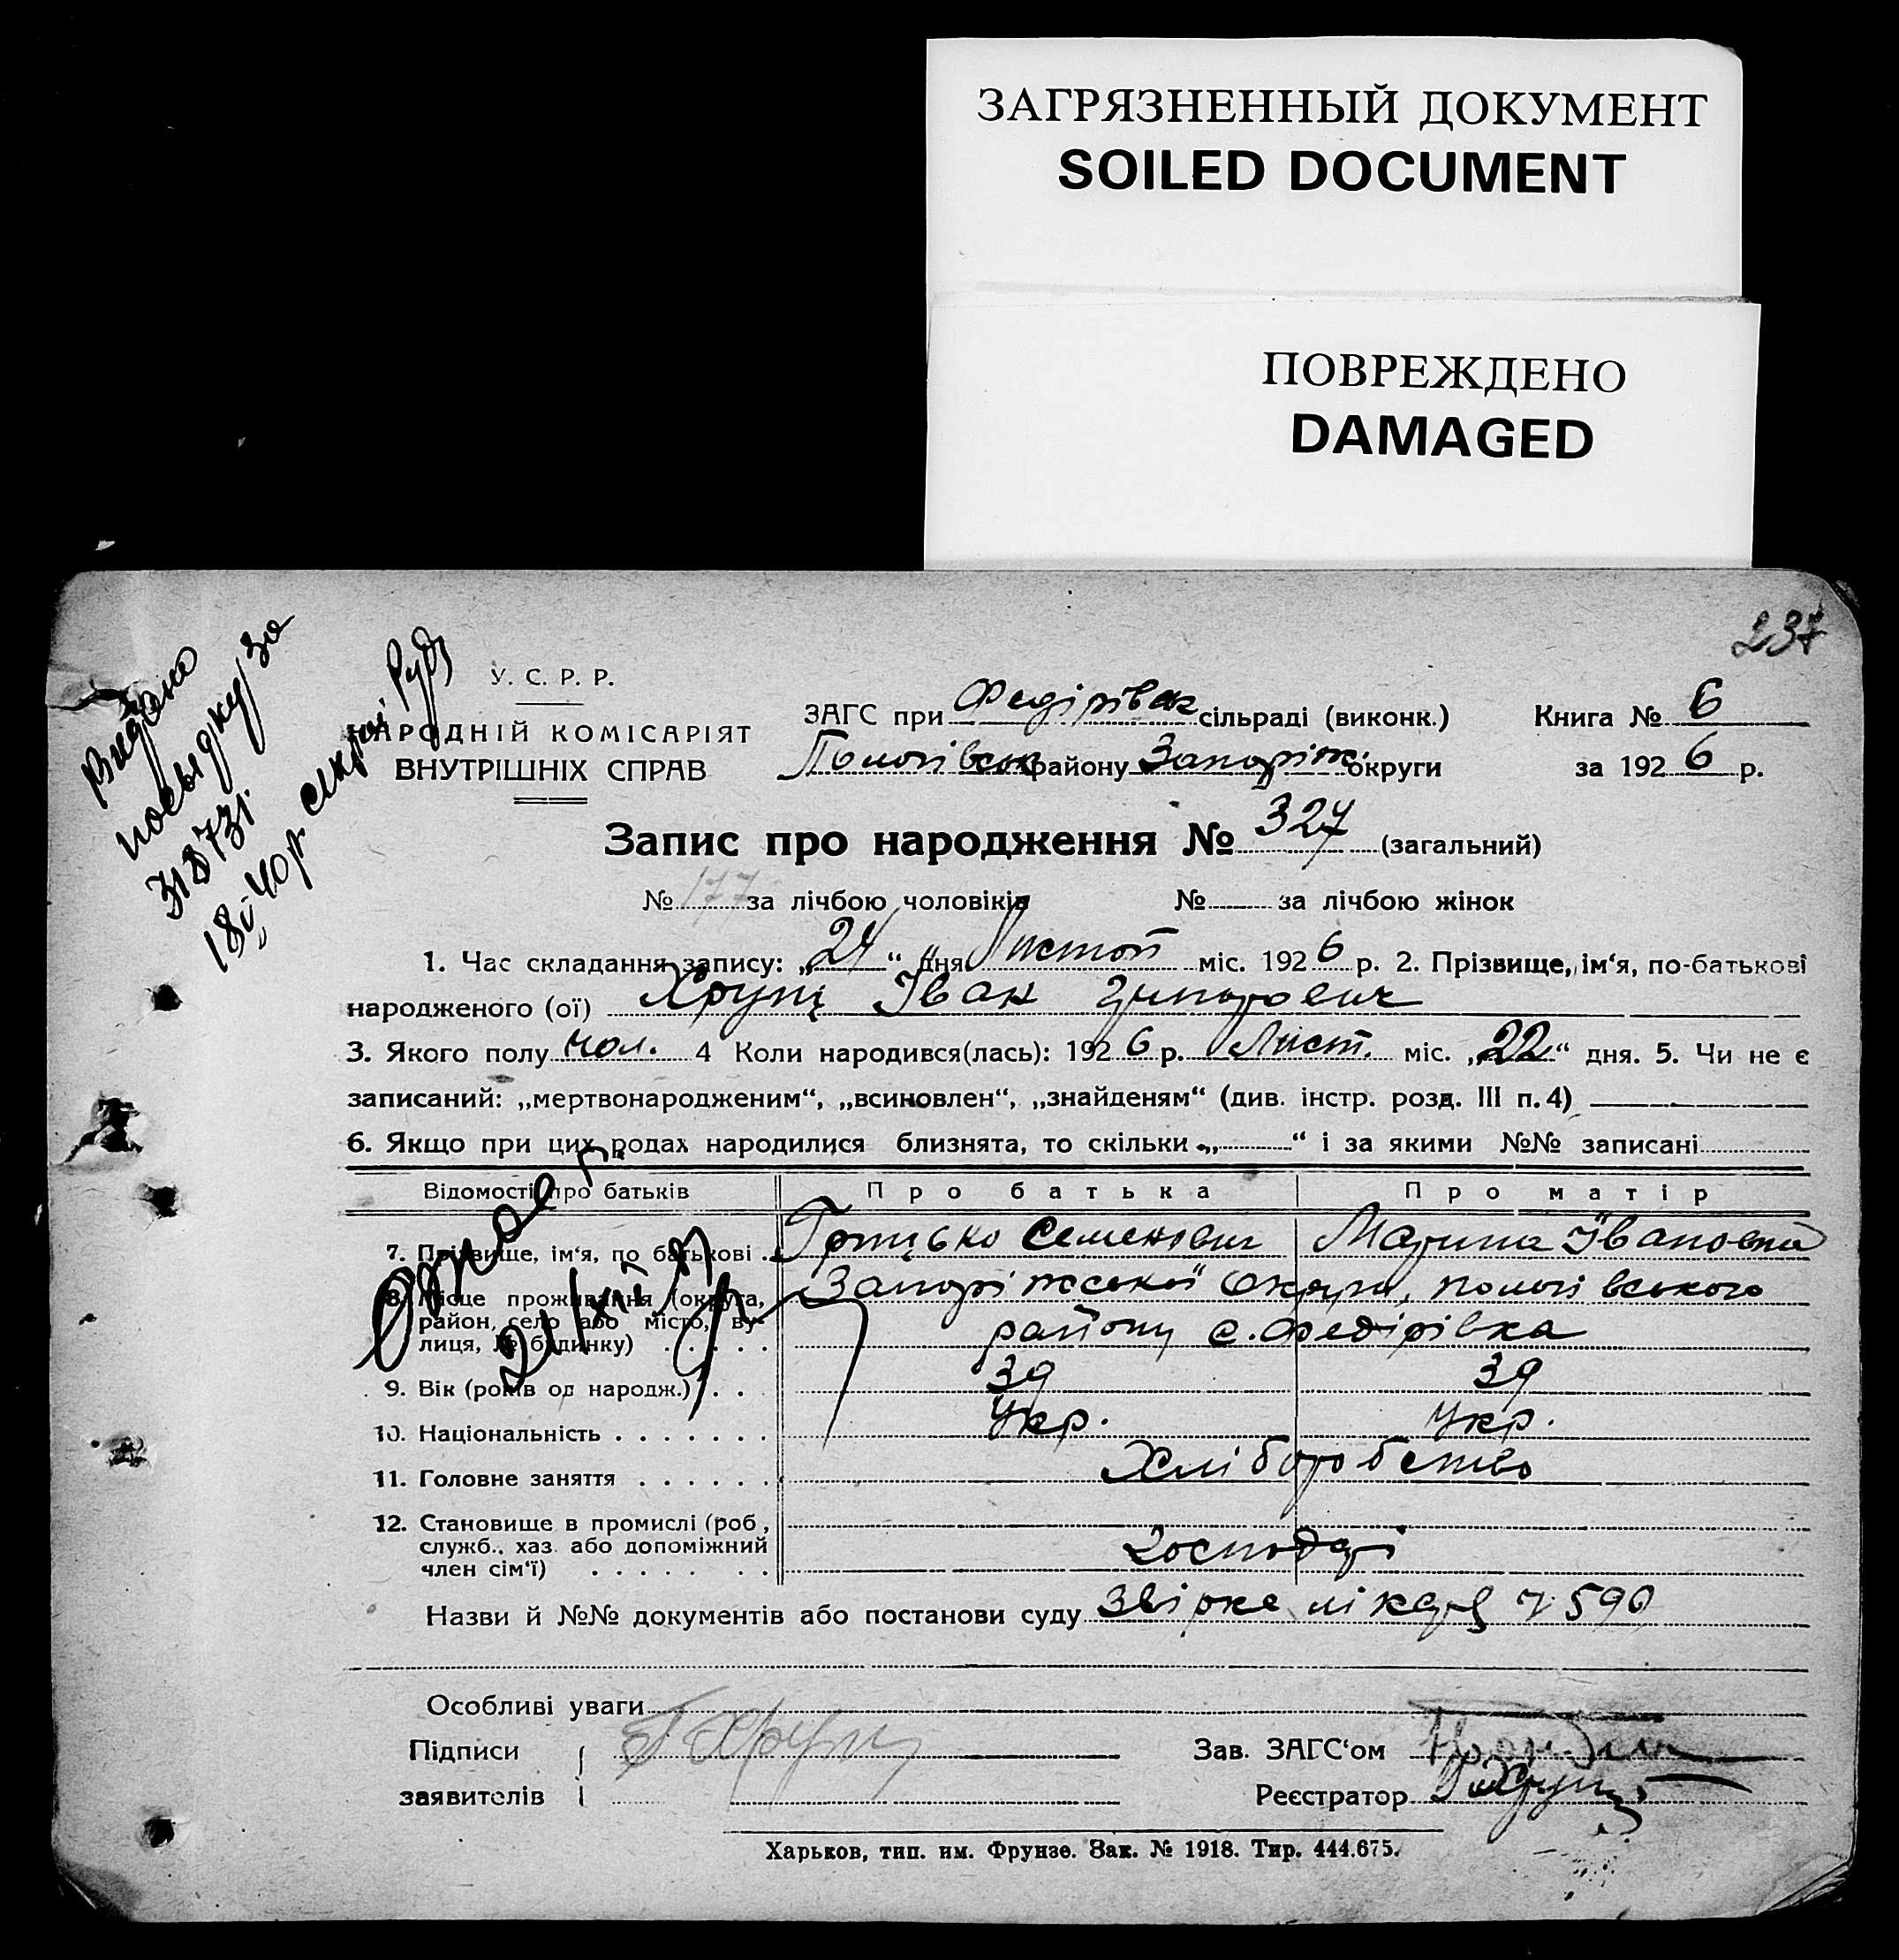 ЗАГРЯЗНЕННЫЙ ДОКУМЕНТ
SOILED DOCUMENT
ПОВРЕЖДЕНО
DAMAGED
237
Видано
посвідку за
318731.
У. С. Р. Р.
НАРОДНІЙ КОМІСАРІЯТ
ВНУТРІШНІХ СПРАВ
ЗАГС при Федірівск сільраді (виконк.) Книга № 6
Пологівськ району Запоріж. округи за 1926 р.
Запис про народження № 327 (загальний)
№ 177 за лічбою чоловіків № за лічбою жінок
1. Час складання запису: „24“ дня Листоп міс. 1926 р. 2. Прізвище, ім‘я, по-батькові
народженого (ої) Хрущ Іван Григорович
3. Якого полу чол. 4 Коли народився(лась): 1926 р. Лист. міс. „22“ дня. 5. Чи не є
записаний: „мертвонародженим“, „всиновлен“, „знайденям“ (див. інстр. розд. III п. 4)
6. Якщо при цих родах народилися близнята, то скільки „ “ і за якими №№ записані
Відомості про батьків Про батька Про матір
7. Прізвище, ім‘я, по батькові Грицько Семенович Марина Івановна
8. Місце проживання (округа, Запоріжської Округи, пологівського
район, село або місто, ву- району с. Федірівка
лиця, № будинку)
9. Вік (років од народж.) 39 39
10. Національність Укр. Укр.
11. Головне заняття Хліборобство
12. Становище в промислі (роб,
служб., хаз. або допоміжний Господарі
член сім‘ї)
Назви й №№ документів або постанови суду 590
Особливі уваги
Підписи Г Хрущ Зав. ЗАГС‘ом
заявителів Реєстратор Хрущ
Харьков, тип. им. Фрунзе. Зак. № 1918. Тир. 444.675.